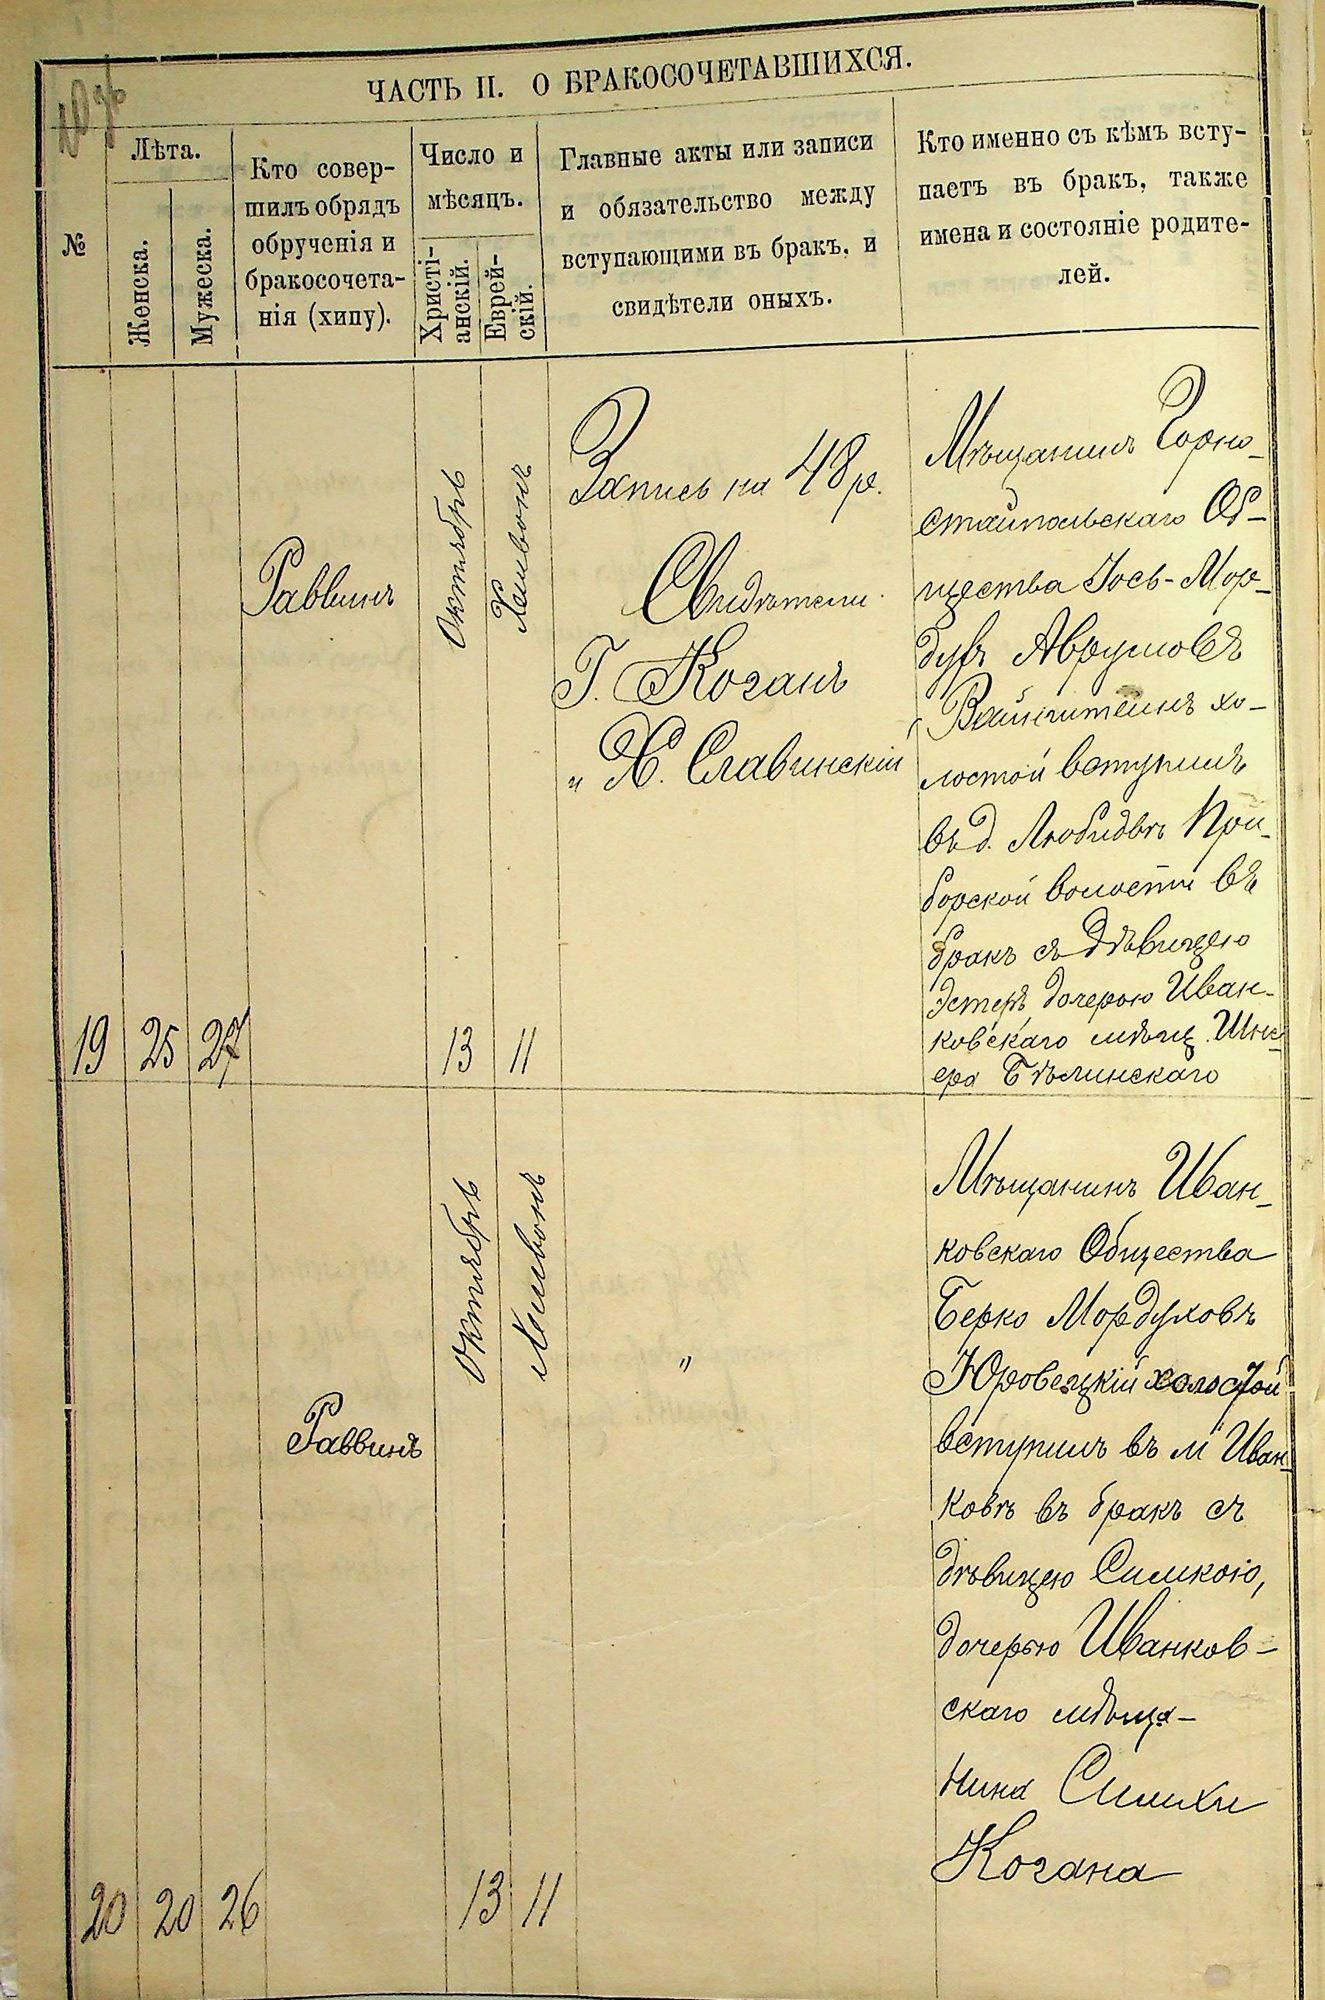 ЧАСТЬ II. О БРАКОСОЧЕТАВШИХСЯ.
№
Лѣта.
Женска.
Мужеска.
Кто совер-
шилъ обрядъ
обрученія и
бракосочета-
нія (хипу).
Число и
мѣсяцъ.
Христі-
анскій.
Еврей-
скій.
Главные акты или записи
и обязательство между
вступающими въ бракъ, и
свидѣтели оныхъ.
Кто именно съ кѣмъ всту-
паетъ въ бракъ, также
имена и состояніе родите-
лей.
19
25
27
Раввинъ
Октябрь
13
Хешвонъ
11
Запись на 48 р.
Свидѣтели
Г. Коганъ
„ Х. Славинскій
Мѣщанинъ Горно-
стайпольскаго Об-
щества Іось-Мор-
духъ Аврумовъ
Вайнштейнъ хо-
лостой вступилъ
въ д. Любидвѣ При-
борской волости въ
бракъ съ Дѣвицею
Эстеръ, дочерью Иван-
ковскаго мѣщ.
Бѣлинскаго
20
20
26
Раввинъ
Октябрь
13
Хешвонъ
11
„
Мѣщанинъ Иван-
ковскаго Общества
Берко Мордуховъ
Юровецкій холостой
вступилъ въ м Иван-
ковѣ въ бракъ съ
дѣвицею Симкою,
дочерью Иванков-
скаго мѣща-
нина Симхи
Когана